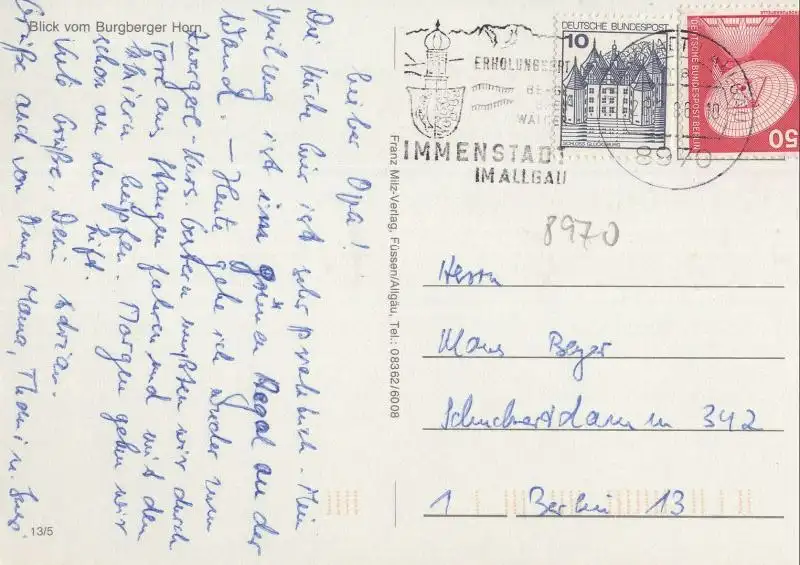 Blick vom Burgberger Horn
Lieber Opa!
Die Küche hier ist sehr praktisch. Mein
Spielzeug ist im grünen Regal an der
Wand. – Heute gehe ich wieder zum
Zwergerl-Kurs. Gestern mußten wir durch
Tore aus Stangen fahren und mit den
Skiern hüpfen. Morgen gehen wir
schon an den Lift.
Viele Grüße, Dein Adrian.
Grüße auch von Oma, Mama, Thomi u.
13/5
Franz Milz-Verlag, Füssen/Allgäu, Tel.: 08362/6008
ERHOLUNGSORT
BERG
WÄLDER
IMMENSTADT
IM ALLGÄU
8970
DEUTSCHE BUNDESPOST
10
SCHLOSS GLÜCKSBURG
DEUTSCHE BUNDESPOST BERLIN
50
8970
Herrn
Klaus Beyer
Schuckertdamm 342
1 Berlin 13